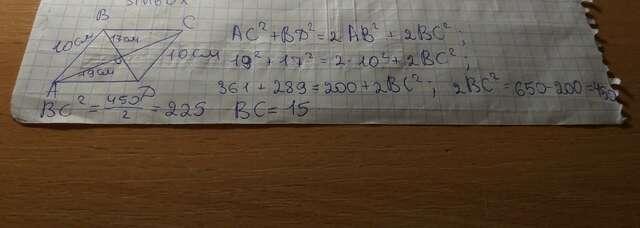 B
C
10см
17см
10см
19см
A
D
AC² + BD² = 2AB² + 2BC² ;
19² + 17² = 2 · 10² + 2BC² ;
361 + 289 = 200 + 2BC² ; 2BC² = 650 - 200 = 450
BC² = 450/2 = 225 BC = 15